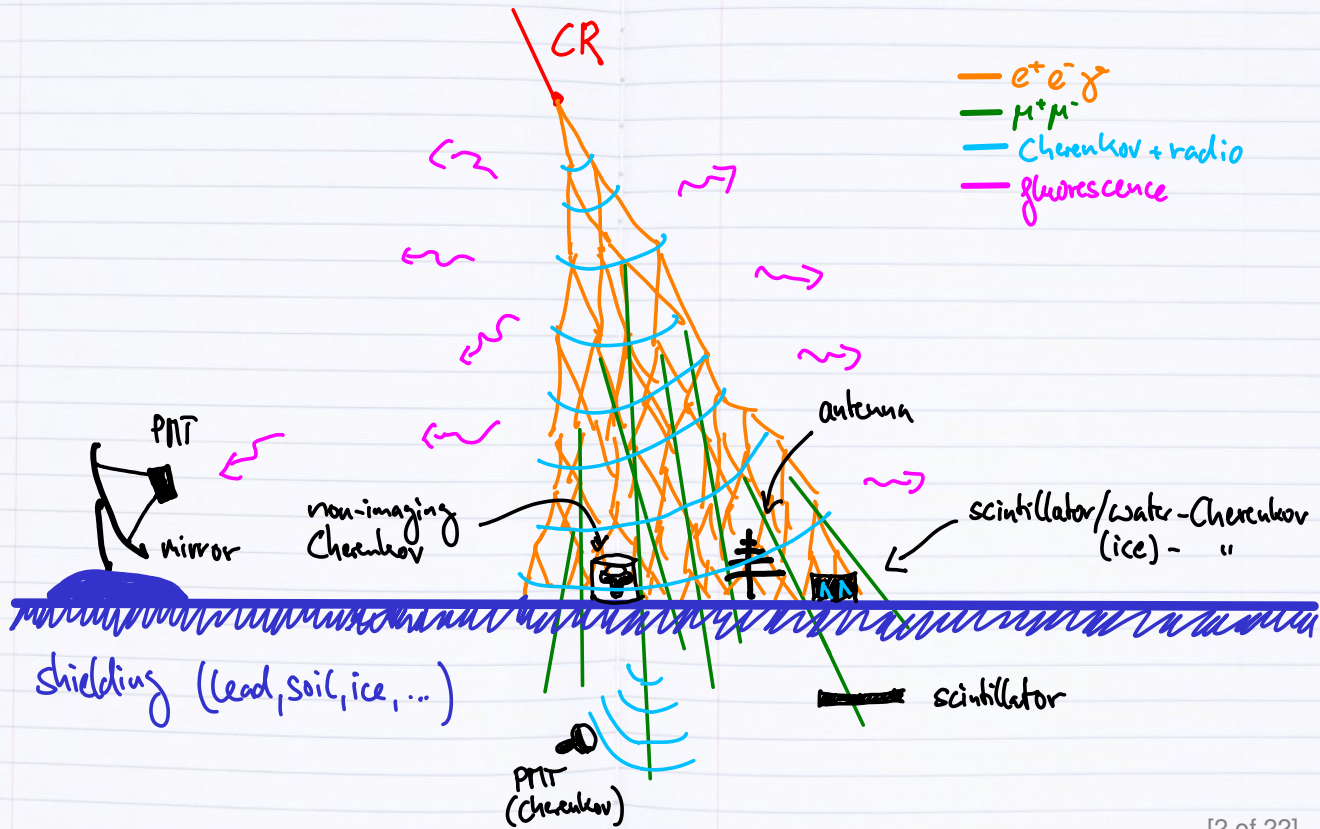 CR
e⁺ e⁻ γ
μ⁺ μ⁻
Cherenkov + radio
fluorescence
antenna
PMT
mirror
non-imaging
Cherenkov
scintillator/water-Cherenkov
(ice) - "
shielding (lead, soil, ice, ...)
scintillator
PMT
(Cherenkov)
[2 of 22]